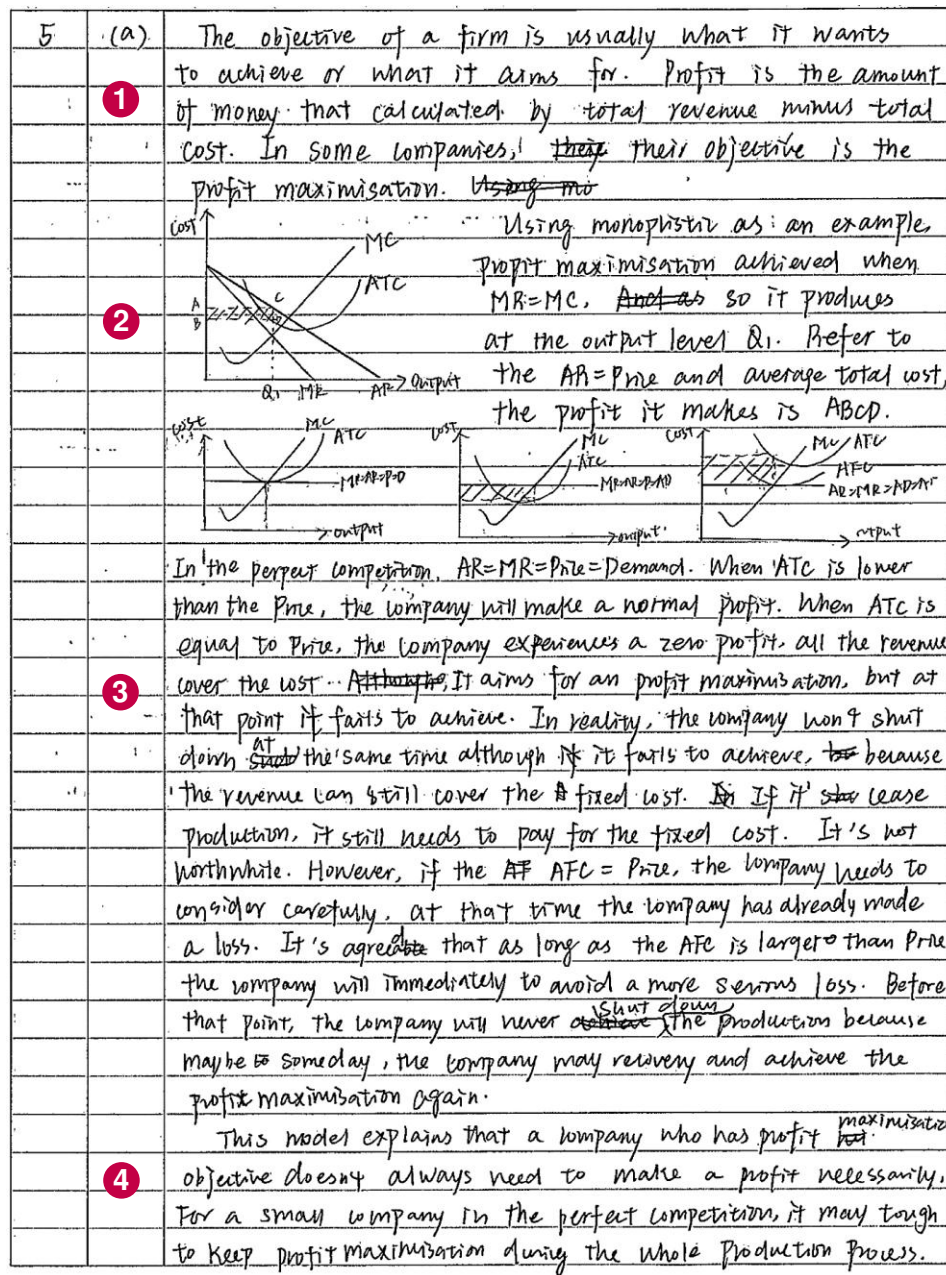 5 (a) The objective of a firm is usually what it wants
to achieve or what it aims for. Profit is the amount
1 of money that calculated by total revenue minus total
cost. In some companies, their their objective is the
profit maximisation. Using mo
Cost MC ATC A B C Q1 MR AR Output
2
Using monoplistic as an example,
profit maximisation achieved when
MR=MC, And as so it produces
at the output level Q1. Refer to
the AR=Price and average total cost,
the profit it makes is ABCD.
cost MC ATC MR=AR=P=D output
cost MC ATC MR=AR=P=AD output
cost MC ATC AFC AR=MR=AD=AT output
In the perfect competition, AR=MR=Price=Demand. When ATC is lower
than the Price, the company will make a normal profit. When ATC is
equal to Price, the company experiences a zero profit, all the revenue
3 cover the cost. Although, It aims for an profit maximisation, but at
that point it fails to achieve. In reality, the company won't shut
down at the same time although it it fails to achieve, because
the revenue can still cover the fixed cost. If it cease
production, it still needs to pay for the fixed cost. It's not
worthwhile. However, if the AFC = Price, the company needs to
consider carefully, at that time the company has already made
a loss. It's agreed that as long as the AFC is larger than Price
the company will immediately to avoid a more serious loss. Before
that point, the company will never achieve shut down the production because
maybe to someday, the company may recovery and achieve the
profit maximisation again.
This model explains that a company who has profit maximisatio
4 objective doesn't always need to make a profit necessarily.
For a small company in the perfect competition, it may tough
to keep profit maximisation during the whole production process.